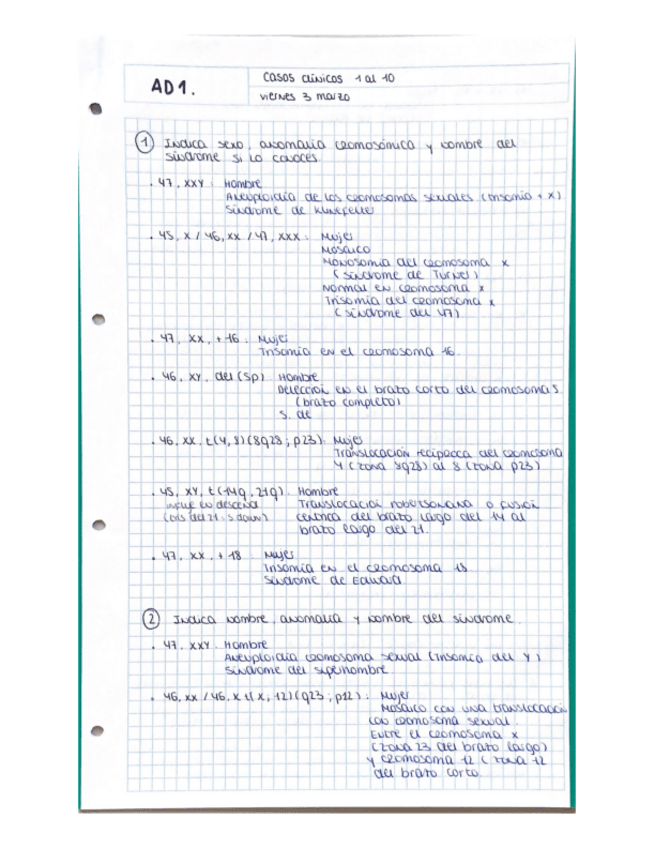 AD1.
Casos clínicos 1 al 10
viernes 3 marzo
1 Indica sexo, anomalia cromosómica y nombre del
síndrome si lo conoces.
. 47, XXY: Hombre
Aneuploidía de los cromosomas sexuales (trisomía + x)
Síndrome de Klinefelter
. 45, X / 46, XX / 47, XXX: Mujer
Mosaico
Monosomía del cromosoma x
(síndrome de Turner)
Normal en cromosoma x
Trisomía del cromosoma x
(síndrome del 47)
. 47, XX, +16. Mujer
Trisomía en el cromosoma 16.
. 46, XY, del (5p). Hombre
Deleccion en el brazo corto del cromosoma 5
(brazo completo)
S. de
. 46, XX, t(4,8)(8q28; p23). Mujer
Translocación recíproca del cromosoma
4 (zona 8q28) al 8 (zona p23)
. 45, XY, t(14q, 21q). Hombre
influye en descend Translocación robersoniana o fusión
(dis del 21: s. down) céntrica del brazo largo del 14 al
brazo largo del 21.
. 47, XX, +18 Mujer
Trisomía en el cromosoma 18
Síndrome de Edward.
2 Indica nombre, anomalía y nombre del síndrome.
. 47, XXY. Hombre
Aneuploidía cromosoma sexual (trisomía del Y)
Síndrome del superhombre.
. 46, XX / 46, X t(X, 12)(q23; p12): Mujer
Mosaico con una translocación
con cromosoma sexual.
Entre el cromosoma x
(zona 23 del brazo largo)
y cromosoma 12 (zona 12
del brazo corto.